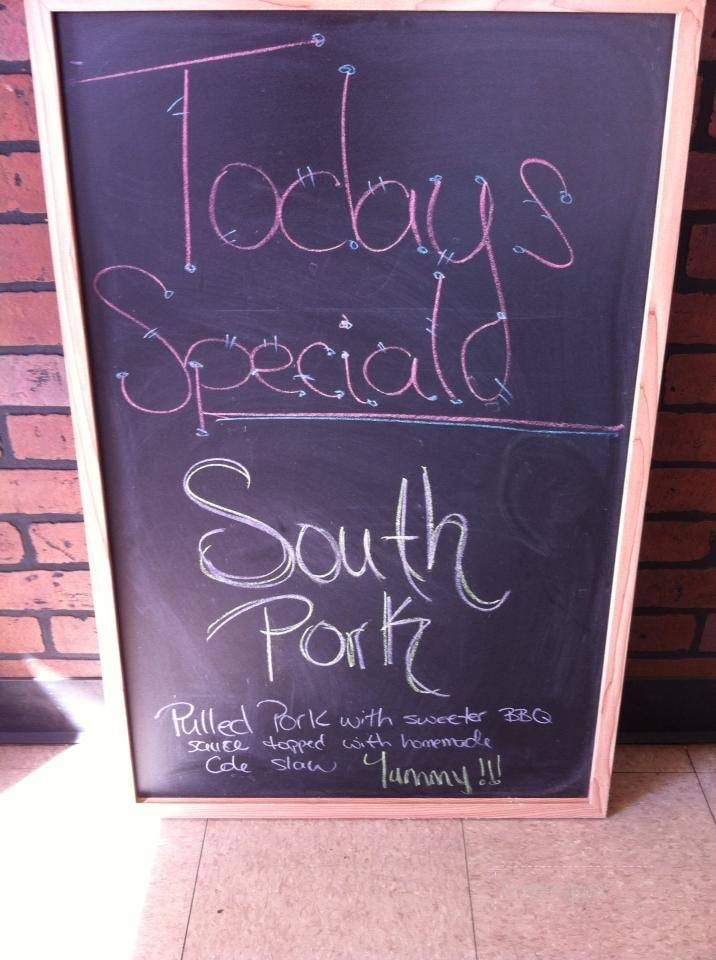 Todays
Special
South
Pork
Pulled Pork with sweeter BBQ
sauce topped with homemade
Cole slaw Yummy!!!